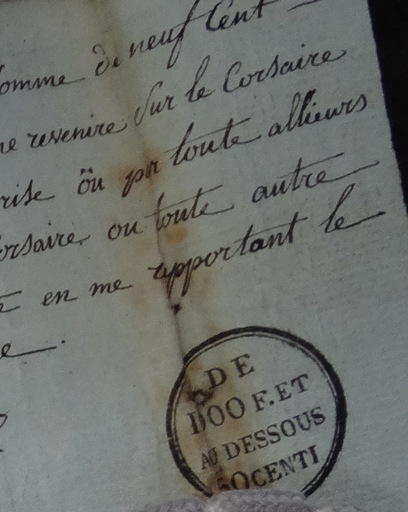 omme de neuf Cent
e revenire sur le Corsaire
rise öu par toute allieurs
orsaire, ou toute autre
en me apportant le
e.
DE
DOO F. ET
AU DESSOUS
OCENTI